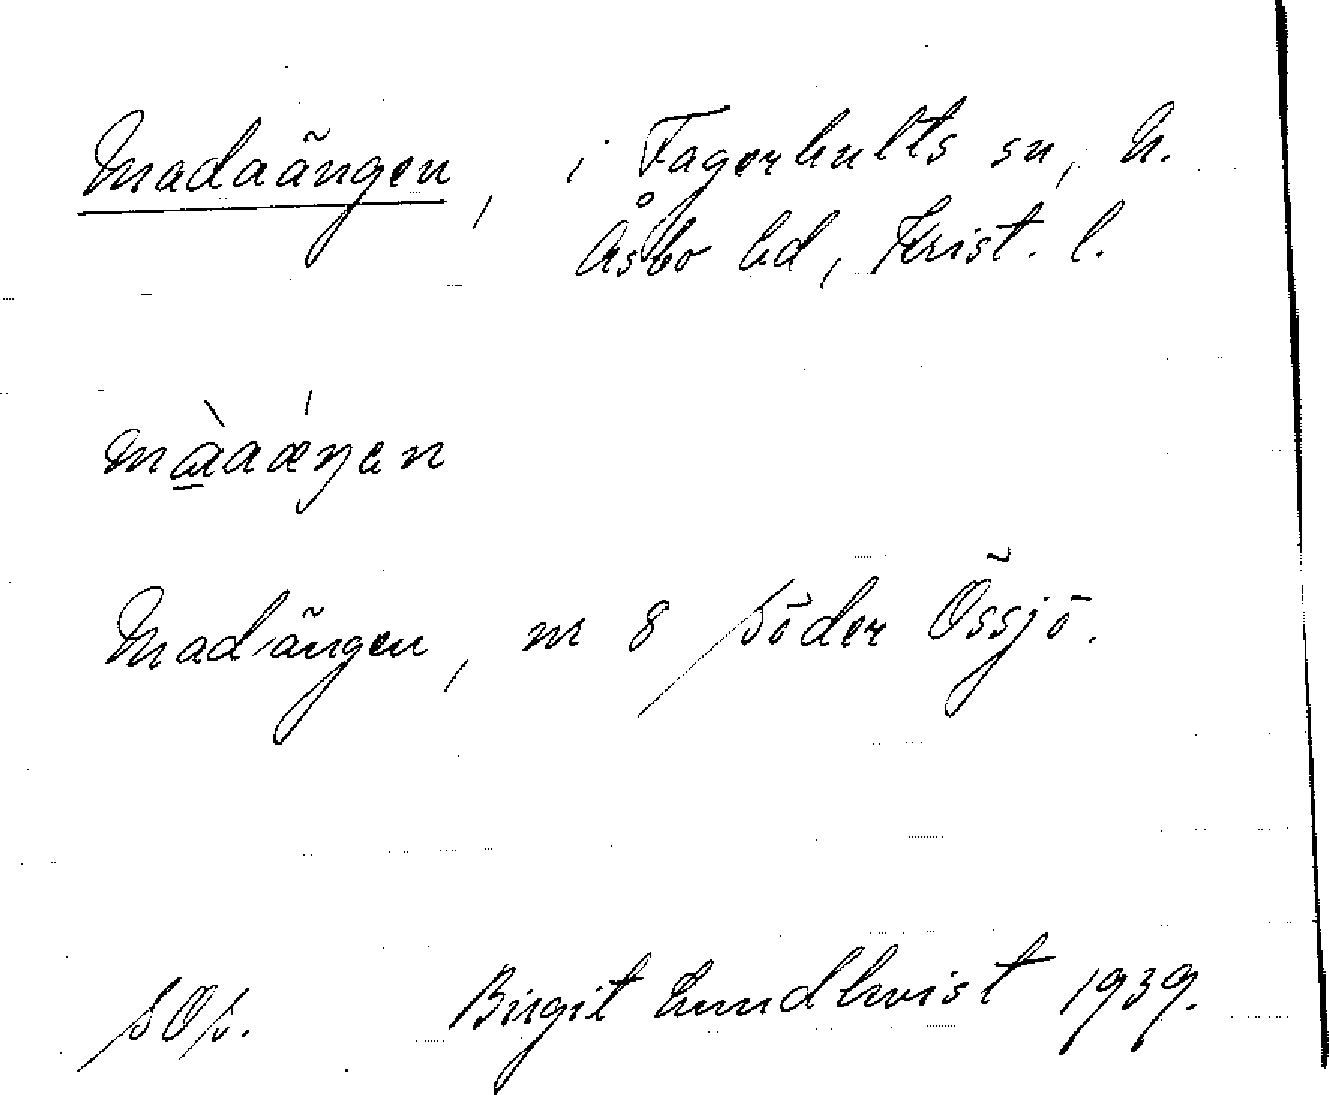 Madaängen, i Fagerhults sn, N.
Åsbo hd, Krist. l.
Madängen, m 8 Söder Össjö.
SOs. Birgit Lundkvist 1939.